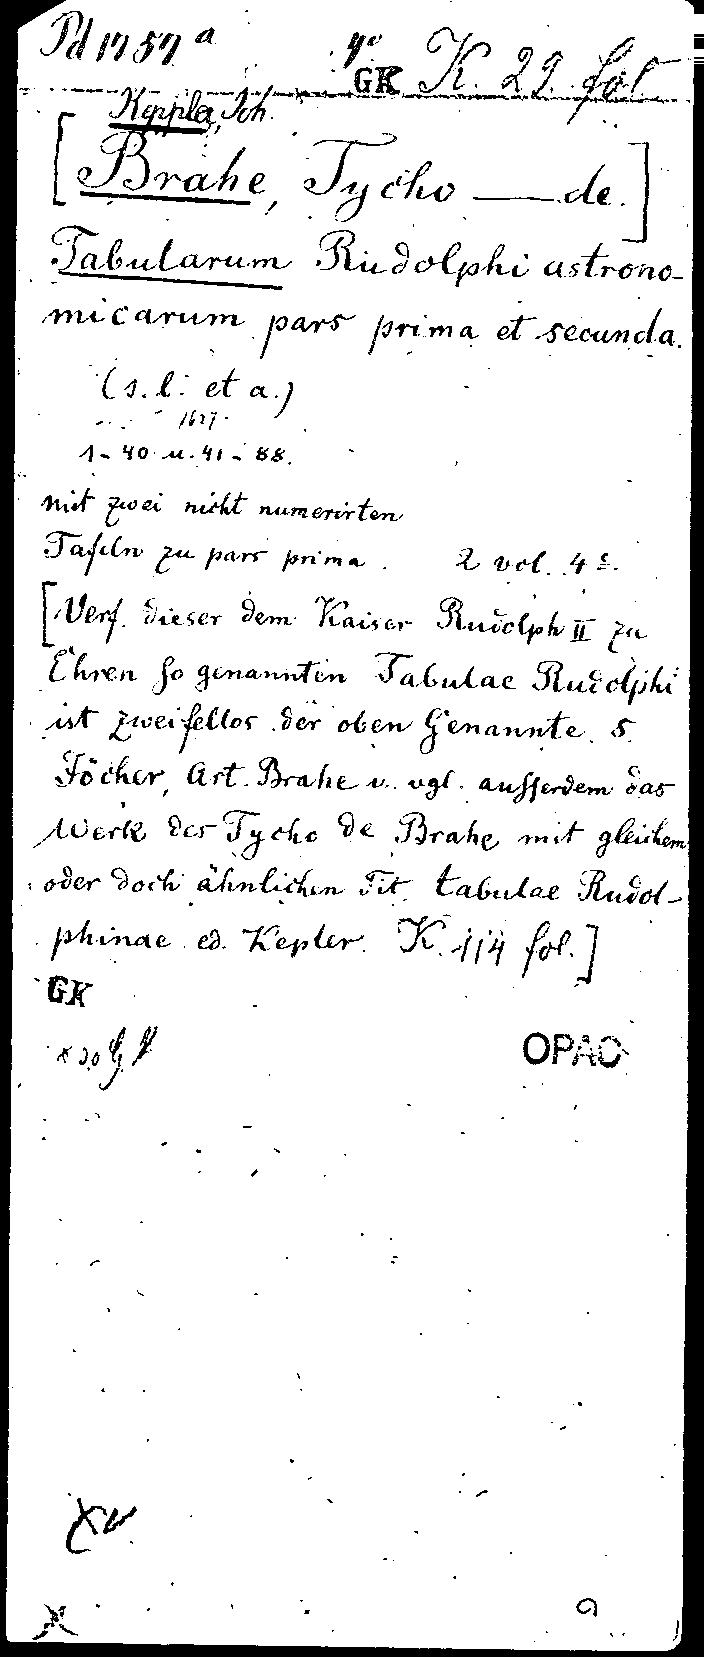 Pd 1757 a 4o GK K. 29. fol
Keppler, Joh.
[Brahe, Tycho — de.]
Tabularum Rudolphi astrono-
micarum pars prima et secunda.
(s. l. et a.)
1627.
1-40 u. 41-88.
mit zwei nicht numerirten
Tafeln zu pars prima. 2 vol. 4o.
[Verf. dieser dem Kaiser Rudolph II zu
Ehren so genannten Tabulae Rudolphi
ist zweifellos der oben Genannte. s.
Jöcher, Art. Brahe u. vgl. ausserdem das
Werk des Tycho de Brahe mit gleichem
oder doch ähnlichen Tit. tabulae Rudol-
phinae ed. Kepler. K. 114 fol.]
GK
OPAC